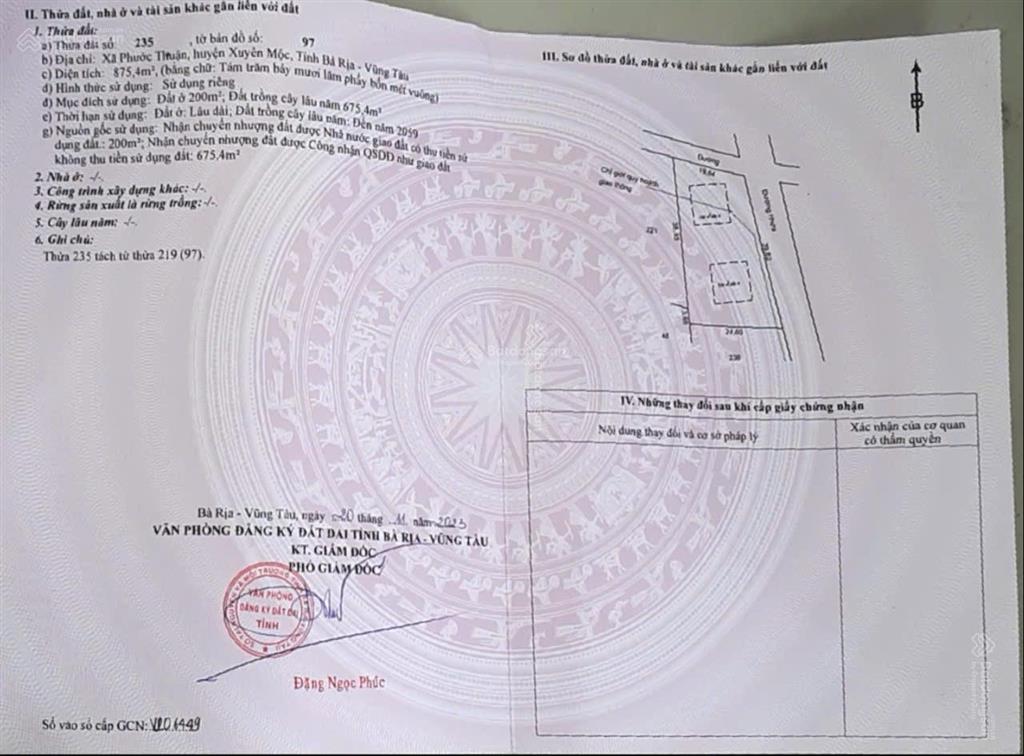 II. Thửa đất, nhà ở và tài sản khác gắn liền với đất
1. Thửa đất:
a) Thửa đất số: 235 , tờ bản đồ số: 97
b) Địa chỉ: Xã Phước Thuận, huyện Xuyên Mộc, Tỉnh Bà Rịa - Vũng Tàu
c) Diện tích: 875,4m², (bằng chữ: Tám trăm bảy mươi lăm phẩy bốn mét vuông)
d) Hình thức sử dụng: Sử dụng riêng
đ) Mục đích sử dụng: Đất ở 200m²; Đất trồng cây lâu năm 675,4m²
e) Thời hạn sử dụng: Đất ở: Lâu dài; Đất trồng cây lâu năm: Đến năm 2059
g) Nguồn gốc sử dụng: Nhận chuyển nhượng đất được Nhà nước giao đất có thu tiền sử
dụng đất.: 200m²; Nhận chuyển nhượng đất được Công nhận QSDĐ như giao đất
không thu tiền sử dụng đất: 675,4m²
2. Nhà ở: -/-.
3. Công trình xây dựng khác: -/-.
4. Rừng sản xuất là rừng trồng: -/-.
5. Cây lâu năm: -/-.
6. Ghi chú:
Thửa 235 tách từ thửa 219 (97).
Bà Rịa - Vũng Tàu, ngày 20 tháng 11 năm 2023
VĂN PHÒNG ĐĂNG KÝ ĐẤT ĐAI TỈNH BÀ RỊA - VŨNG TÀU
KT. GIÁM ĐỐC
PHÓ GIÁM ĐỐC
VĂN PHÒNG
ĐĂNG KÝ ĐẤT ĐAI
TỈNH
Đặng Ngọc Phúc
Số vào sổ cấp GCN:
III. Sơ đồ thửa đất, nhà ở và tài sản khác gắn liền với đất
Đường
Chỉ giới quy hoạch
giao thông
Đường Nhựa
221
48
24.60
238
IV. Những thay đổi sau khi cấp giấy chứng nhận
Nội dung thay đổi và cơ sở pháp lý
Xác nhận của cơ quan
có thẩm quyền
Batdongsan